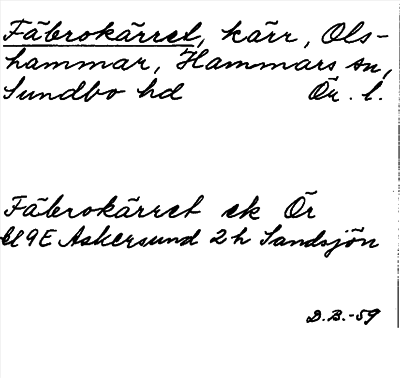 Fäbrokärret, kärr, Ols-
hammar, Hammars sn,
Sundbo hd Ör. l.
Fäbrokärret ek Ör
9E Askersund 2h Sandsjön
D.B.-59